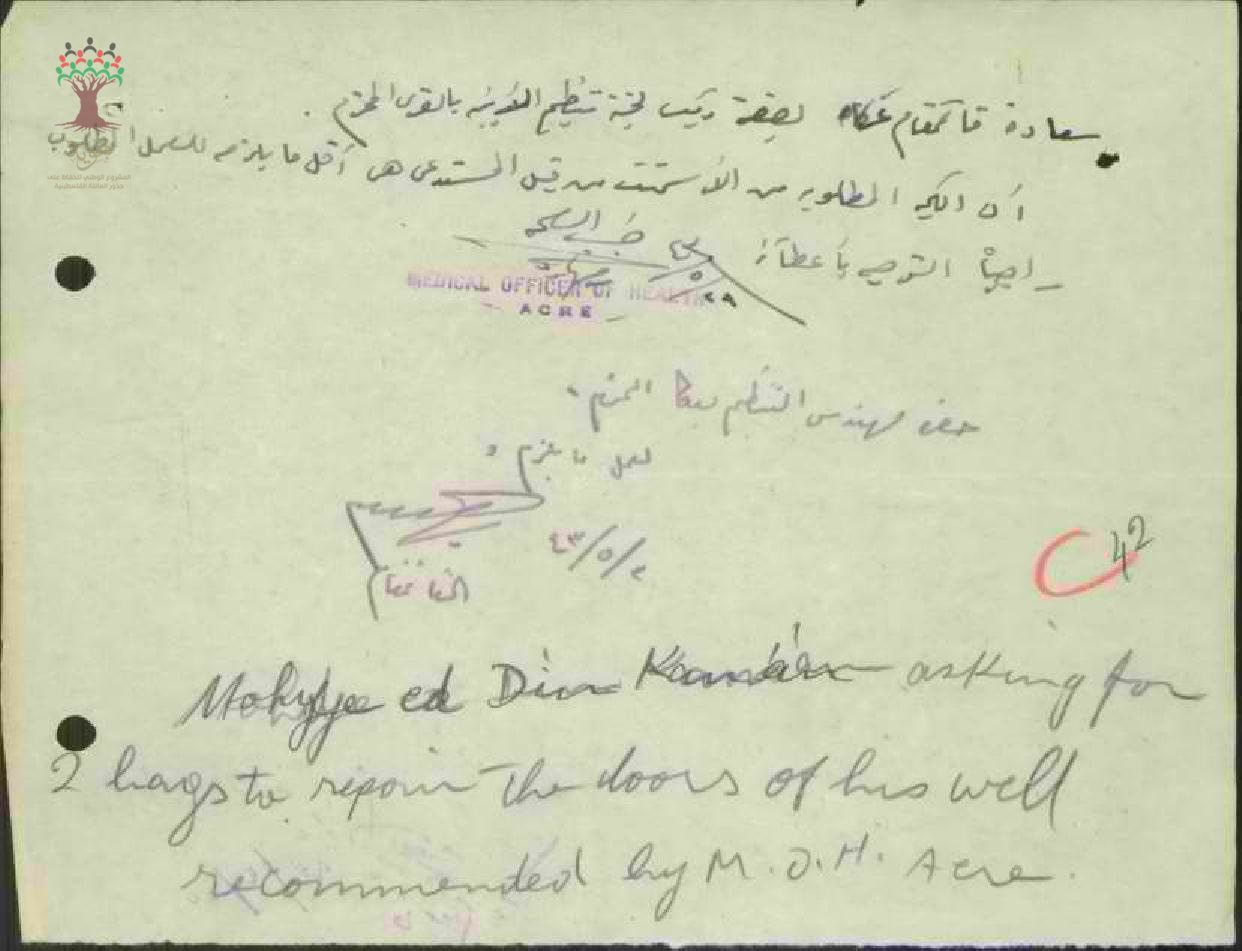 سعادة قائمقام عكا بصفته رئيس لجنة تنظيم الأبنية بالقرى المحترم .
ان الكمية المطلوبه من الأسمنت من قبل المستدعى هى أقل ما يلزمه للعمل المطلوب
راجياً التوصيه بأعطائه
طبيب الصحه
MEDICAL OFFICER OF HEALTH
ACRE
حضرة مهندس التنظيم بعكا المحترم .
لعمل ما يلزم
٤٣/٥/٤
القائمقام
42
Mohyye ed Din asking for
2 bags to repair the doors of his well
recommended by M.O.H. Acre.